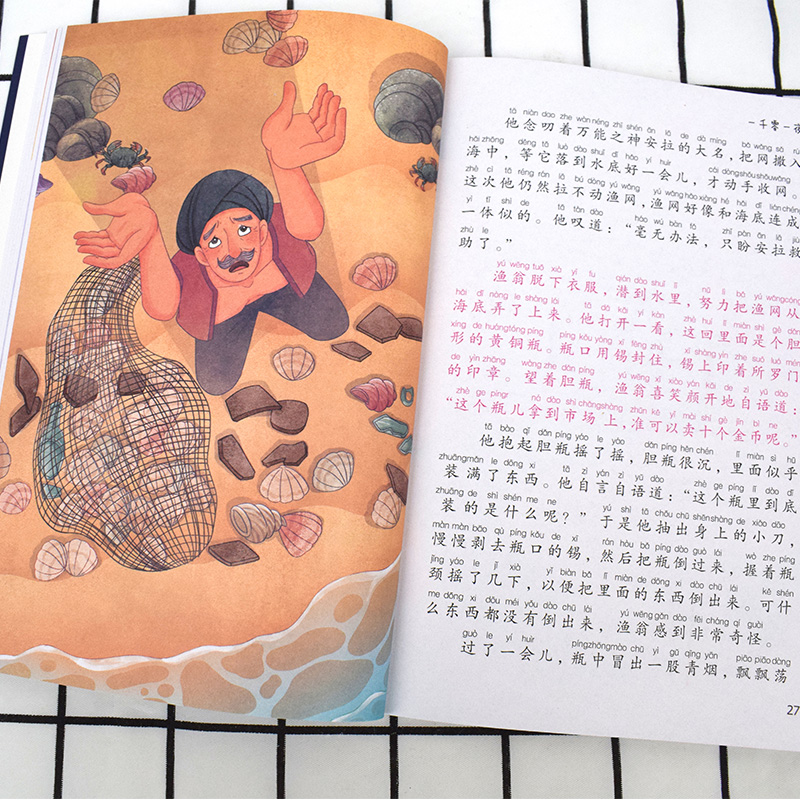 一千零一夜
tā niàn dao zhe wàn néng zhī shén ān lā de dà míng bǎ wǎng sā rù
他念叨着万能之神安拉的大名，把网撒入
hǎi zhōng děng tā luò dào shuǐ dǐ hǎo yí huìr cái dòng shǒu shōu wǎng
海中，等它落到水底好一会儿，才动手收网。
zhè cì tā réng rán lā bú dòng yú wǎng yú wǎng hǎo xiàng hé hǎi dǐ lián chéng
这次他仍然拉不动渔网，渔网好像和海底连成
yì tǐ shì de tā tàn dào háo wú bàn fǎ zhǐ pàn ān lā jiù
一体似的。他叹道：“毫无办法，只盼安拉救
zhù le
助了。”
yú wēng tuō xià yī fu qián dào shuǐ lǐ nǔ lì bǎ yú wǎng cóng
渔翁脱下衣服，潜到水里，努力把渔网从
hǎi dǐ nòng le shàng lái tā dǎ kāi yí kàn zhè huí lǐ miàn shì gè dǎn
海底弄了上来。他打开一看，这回里面是个胆
xíng de huáng tóng píng píng kǒu yòng xī fēng zhù xī shàng yìn zhe suǒ luó mén
形的黄铜瓶。瓶口用锡封住，锡上印着所罗门
de yìn zhāng wàng zhe dǎn píng yú wēng xǐ xiào yán kāi de zì yǔ dào
的印章。望着胆瓶，渔翁喜笑颜开地自语道：
zhè ge píngr ná dào shì chǎng shàng zhǔn kě yǐ mài shí gè jīn bì ne
“这个瓶儿拿到市场上，准可以卖十个金币呢。”
tā bào qǐ dǎn píng yáo le yáo dǎn píng hěn chén lǐ miàn sì hū
他抱起胆瓶摇了摇，胆瓶很沉，里面似乎
zhuāng mǎn le dōng xi tā zì yán zì yǔ dào zhè ge píng lǐ dào dǐ
装满了东西。他自言自语道：“这个瓶里到底
zhuāng de shì shén me ne yú shì tā chōu chū shēn shàng de xiǎo dāo
装的是什么呢？”于是他抽出身上的小刀，
màn màn bāo qù píng kǒu de xī rán hòu bǎ píng dào guò lái wò zhe píng
慢慢剥去瓶口的锡，然后把瓶倒过来，握着瓶
jǐng yáo le jǐ xià yǐ biàn bǎ lǐ miàn de dōng xi dào chū lái kě shén
颈摇了几下，以便把里面的东西倒出来。可什
me dōng xi dōu méi yǒu dào chū lái yú wēng gǎn dào fēi cháng qí guài
么东西都没有倒出来，渔翁感到非常奇怪。
guò le yí huìr píng zhōng mào chū yì gǔ qīng yān piāo piāo dàng
过了一会儿，瓶中冒出一股青烟，飘飘荡
27